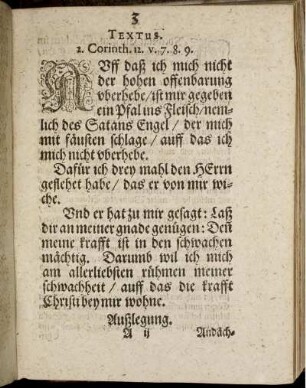 3
TEXTUS.
2. Corinth. 12. v. 7. 8. 9.
AUff daß ich mich nicht
der hohen offenbarung
vberhebe / ist mir gegeben
ein Pfal ins Fleisch / nem-
lich des Satans Engel / der mich
mit fäusten schlage / auff das ich
mich nicht vberhebe.
Dafür ich drey mahl den HErrn
geflehet habe / das er von mir wi-
che.
Vnd er hat zu mir gesagt: Laß
dir an meiner gnade genügen: Deñ
meine krafft ist in den schwachen
mächtig. Darumb wil ich mich
am allerliebsten rühmen meiner
schwachheit / auff das die krafft
Christi bey mir wohne.
Außlegung.
A ij Andäch-